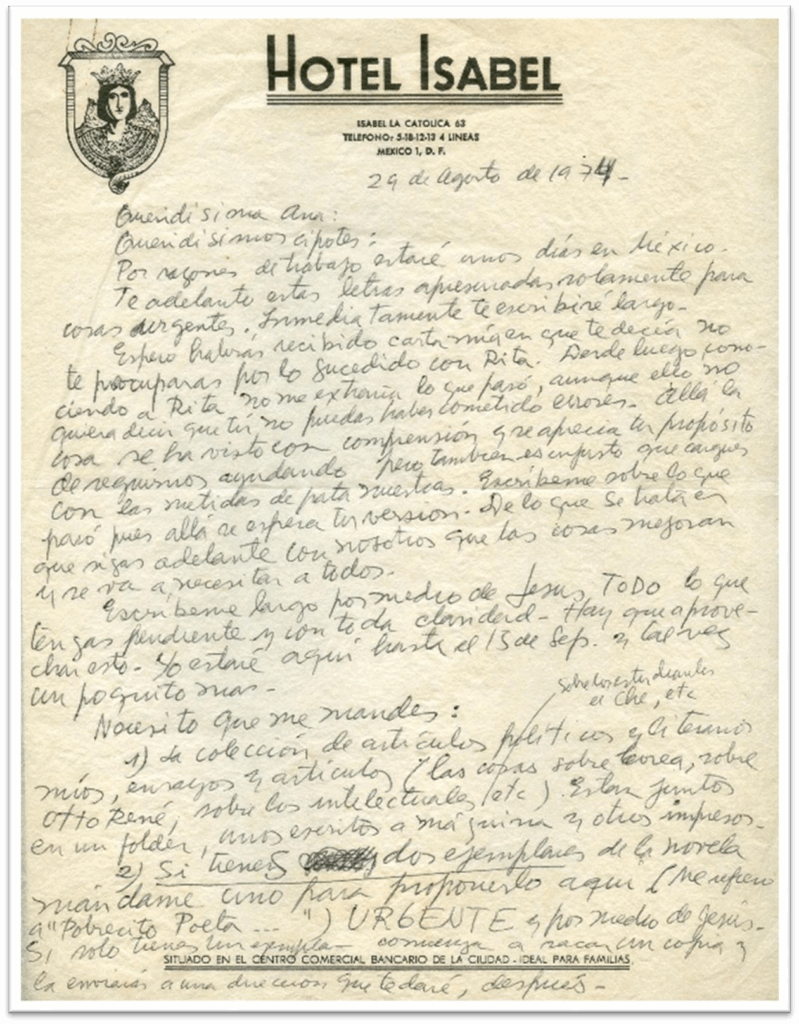 HOTEL ISABEL
ISABEL LA CATOLICA 63
TELEFONO: 5-18-12-13 4 LINEAS
MEXICO 1, D. F.
29 de Agosto de 1974-
Queridisima Ana:
Queridisimos cipotes:
Por razones de trabajo estaré unos días en México.
Te adelanto estas letras apresuradas solamente para
cosas urgentes. Inmediatamente te escribiré largo-
Espero habrás recibido carta mía en que te decía no
te preocuparas por lo sucedido con Rita. Desde luego, cono-
ciendo a Rita no me extraña lo que pasó, aunque ello no
quiera decir que tú no puedas haber cometido errores. Allá la
cosa se ha visto con comprensión y se aprecia tu propósito
de seguirnos ayudando pero también es injusto que cargues
con las metidas de pata nuestras. Escríbeme sobre lo que
pasó pues allá se espera tu version. De lo que se trata es
que sigas adelante con nosotros que las cosas mejoran
y se va a necesitar a todos.
Escríbeme largo por medio de Jesus, TODO lo que
tengas pendiente y con toda claridad- Hay que aprove-
char esto. Yo estaré aquí hasta el 15 de Sep. y tal vez
un poquito mas-
sobre los estudiantes
el Che, etc
Necesito que me mandes:
1) La colección de artículos políticos y literarios
míos, ensayos y artículos (las cosas sobre Corea, sobre
Otto René, sobre los intelectuales, etc). Estan juntos
en un folder, unos escritos a máquina y otros impresos-
2) Si tienes dos ejemplares de la novela
mándame uno para proponerlo aquí (Me refiero
a "Pobrecito Poeta ... ") URGENTE y por medio de Jesús-
Si solo tienes un ejemplar comienza a sacar un copia y
SITUADO EN EL CENTRO COMERCIAL BANCARIO DE LA CIUDAD - IDEAL PARA FAMILIAS
la enviarás a una direccion que te daré, después-